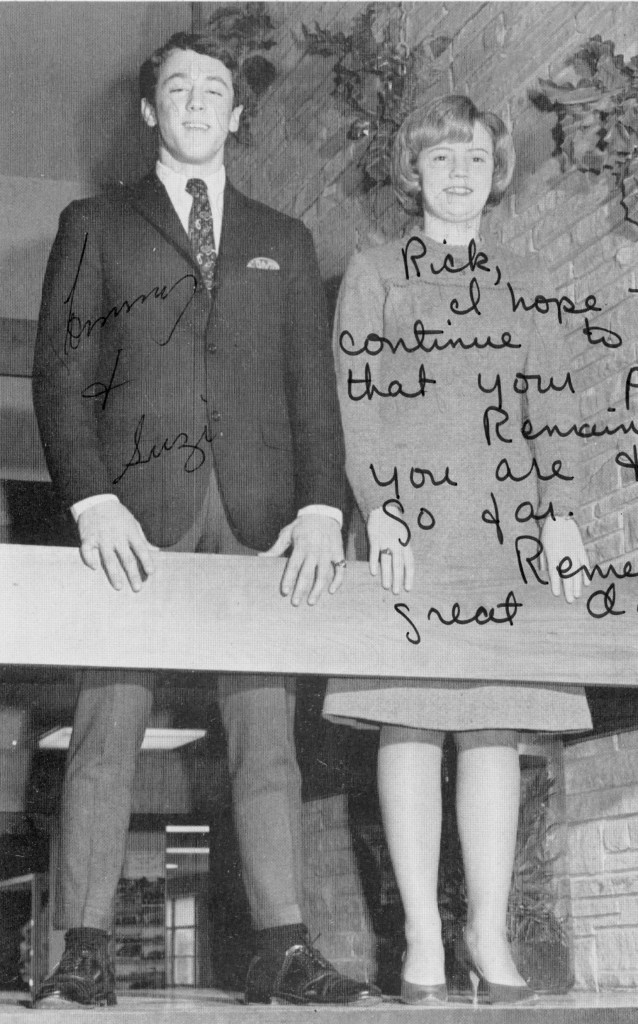 Tommy
&
Suzi
Rick,
I hope
continue to
that your
Remain
you are
so far.
Reme
great